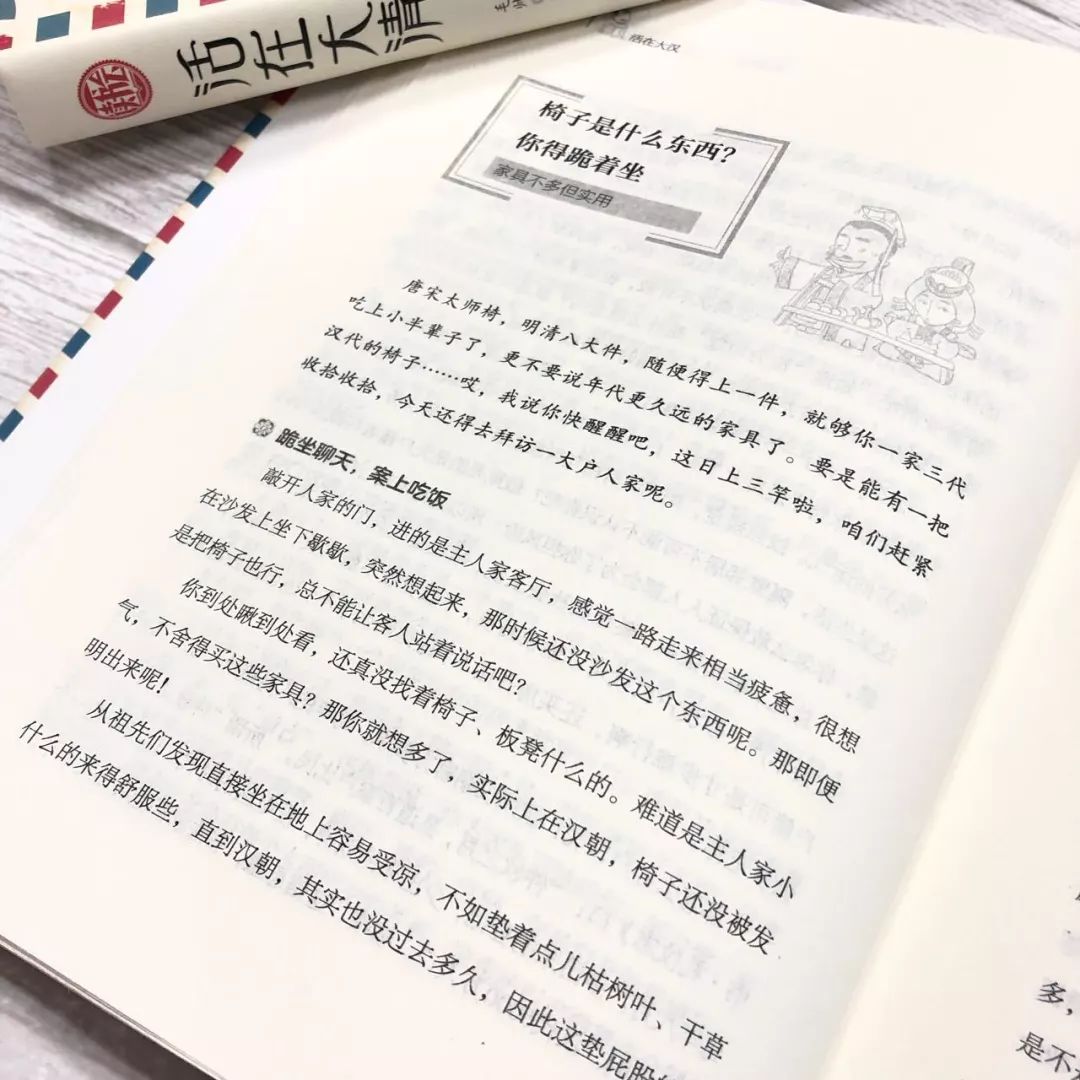 活在大清
活在大汉
椅子是什么东西？
你得跪着坐
家具不多但实用
唐宋太师椅，明清八大件，随便得上一件，就够你一家三代
吃上小半辈子了，更不要说年代更久远的家具了。要是能有一把
汉代的椅子……哎，我说你快醒醒吧，这日上三竿啦，咱们赶紧
收拾收拾，今天还得去拜访一大户人家呢。
跪坐聊天，案上吃饭
敲开人家的门，进的是主人家客厅，感觉一路走来相当疲惫，很想
在沙发上坐下歇歇，突然想起来，那时候还没沙发这个东西呢。那即便
是把椅子也行，总不能让客人站着说话吧？
你到处瞅到处看，还真没找着椅子、板凳什么的。难道是主人家小
气，不舍得买这些家具？那你就想多了，实际上在汉朝，椅子还没被发
明出来呢！
从祖先们发现直接坐在地上容易受凉，不如垫着点儿枯树叶、干草
什么的来得舒服些，直到汉朝，其实也没过去多久，因此这垫屁股
多，
是不